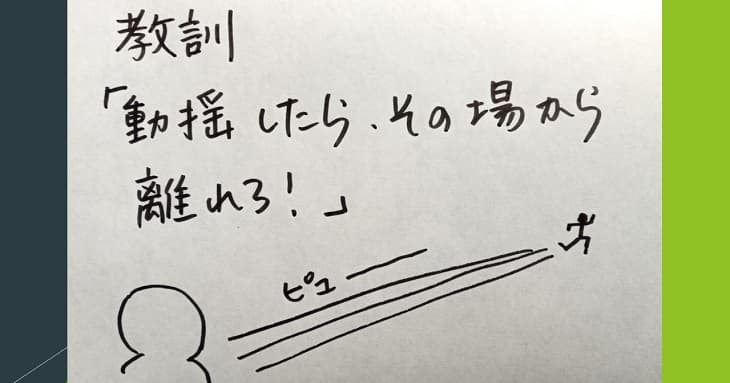 教訓
「動揺したら、その場から
離れろ!」
ピュ